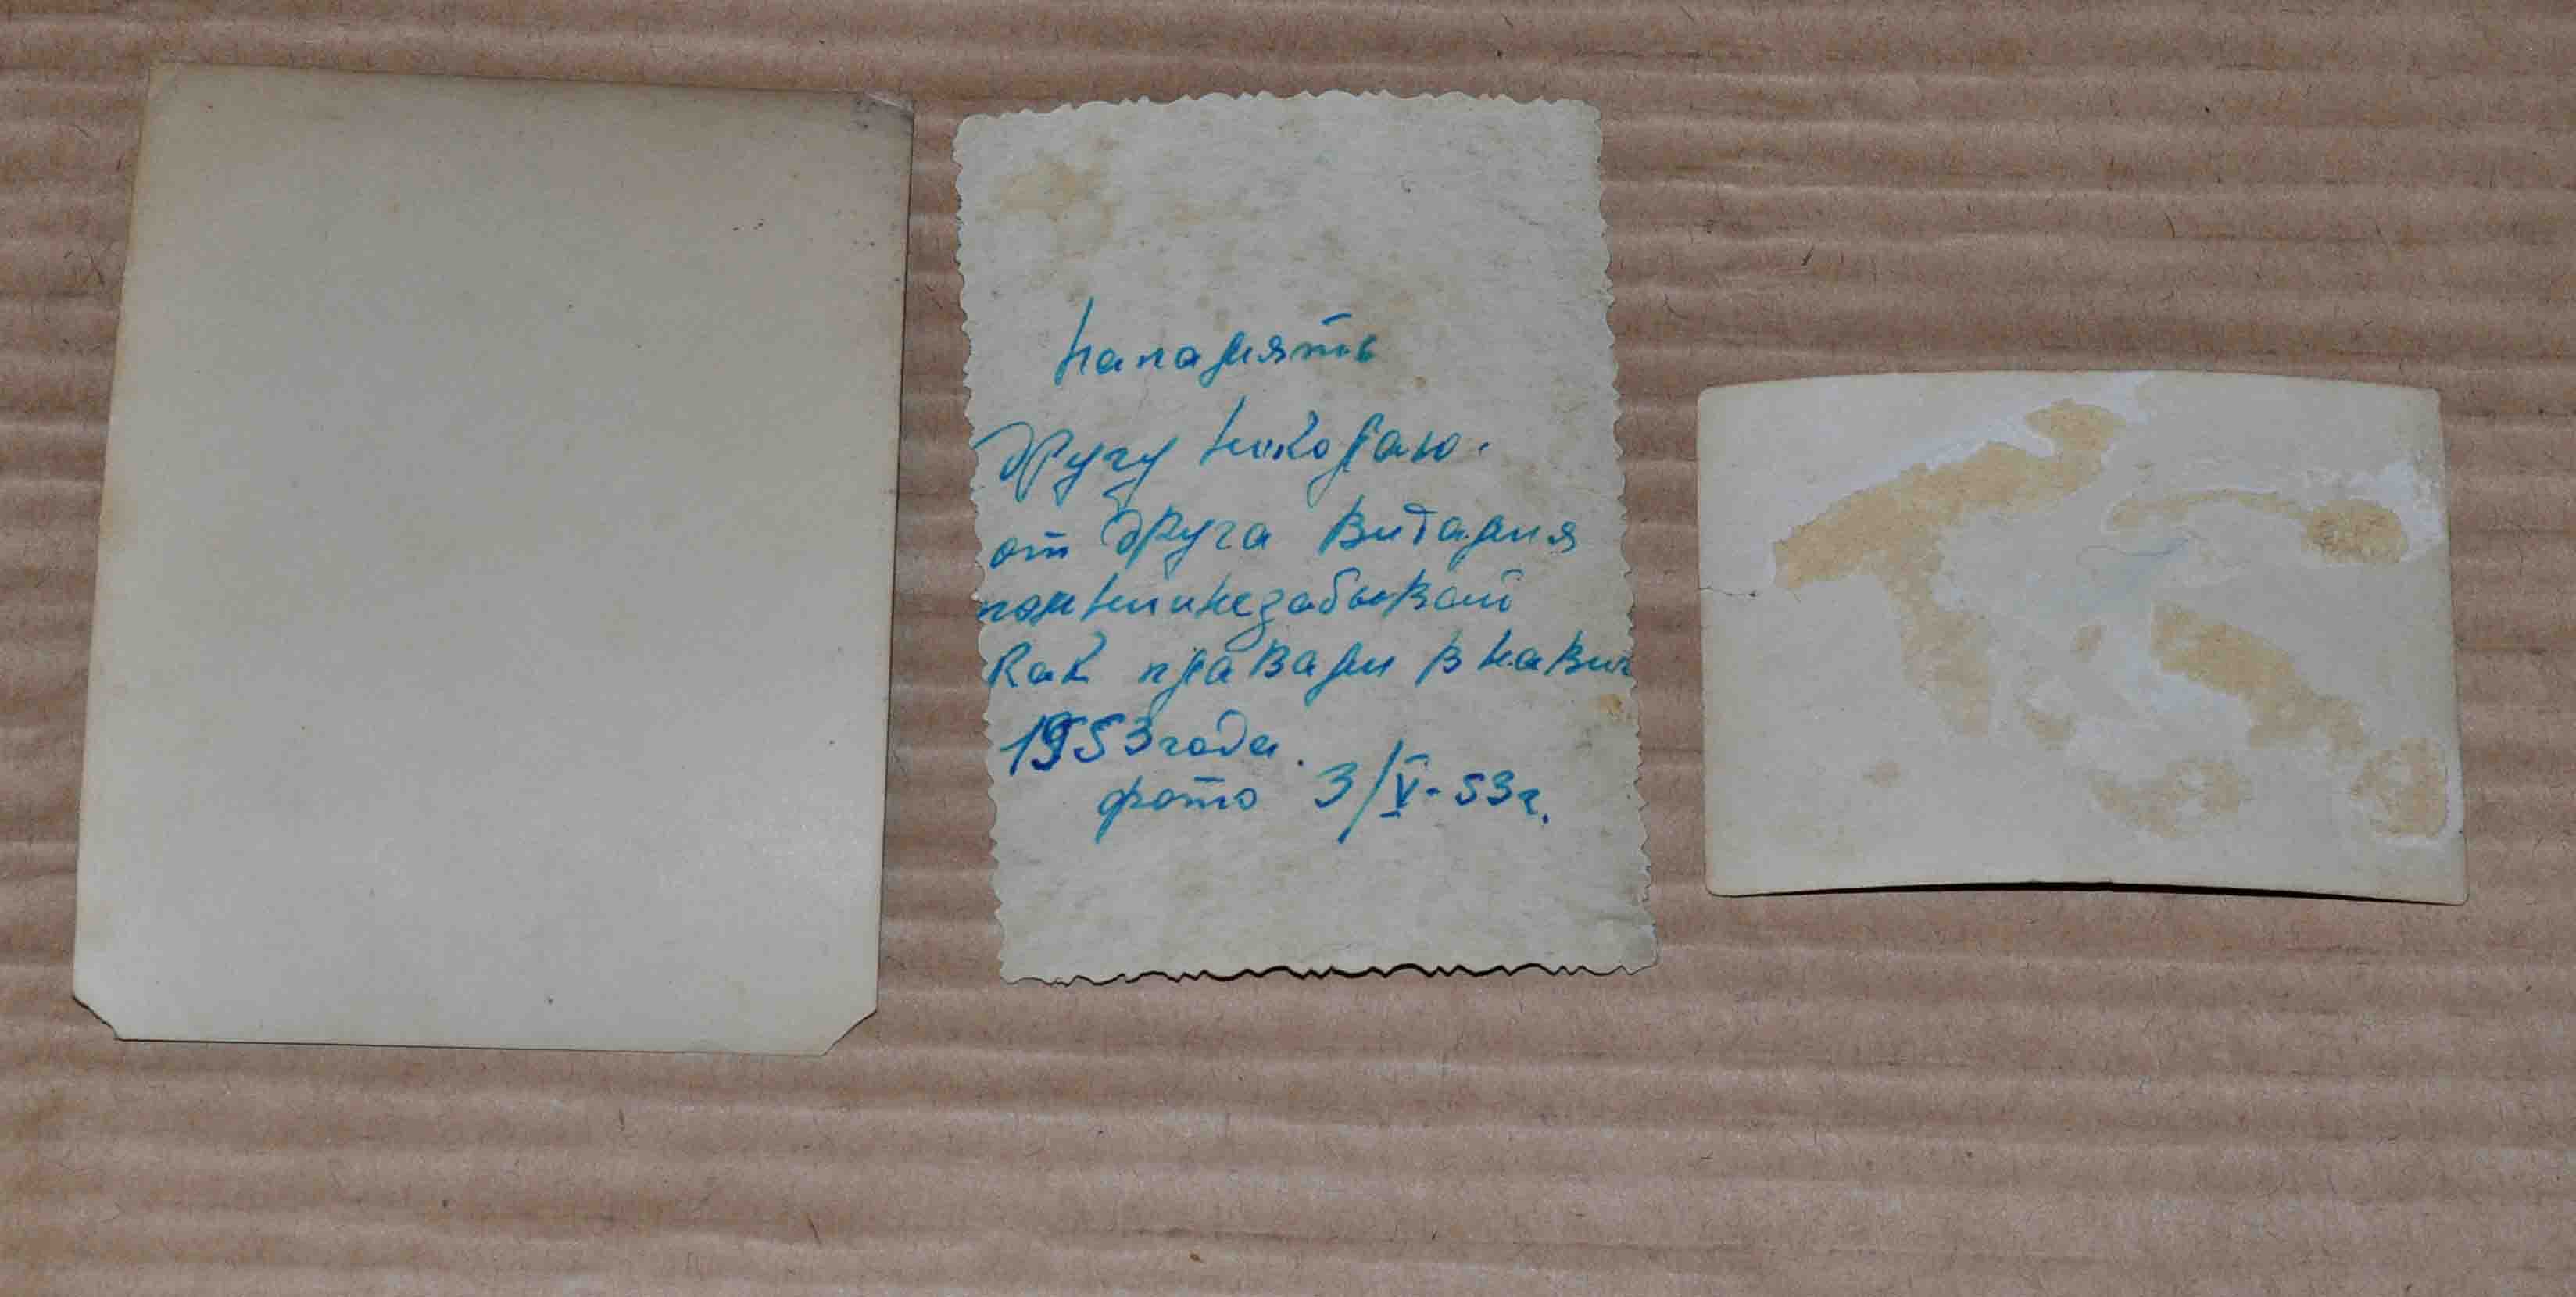 напамять
другу Николаю.
от друга Виталия
помнининезабывай
как плавали в навиг
1953 года.
фото 3/V-53г.